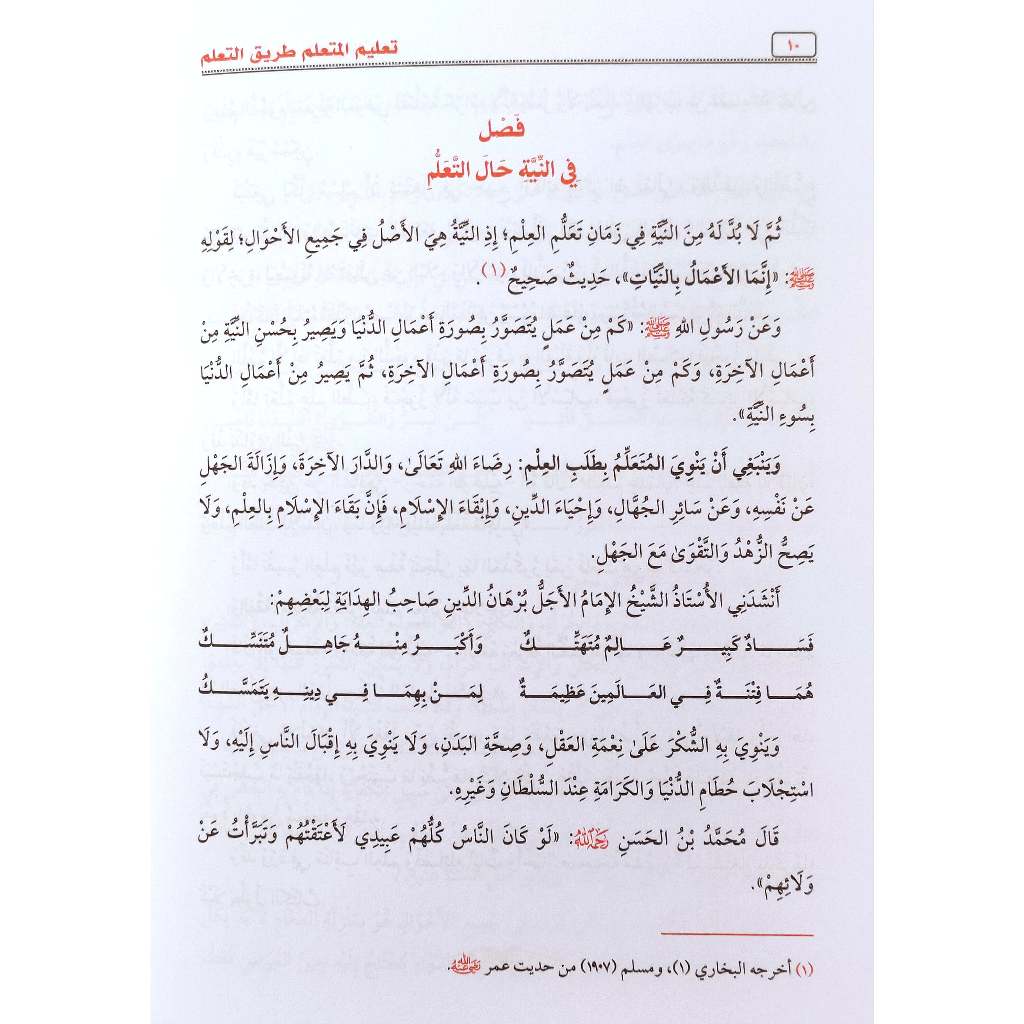 ١٠
تعليم المتعلم طريق التعلم
فَصْل
فِي النِّيَّةِ حَالَ التَّعَلُّمِ
ثُمَّ لَا بُدَّ لَهُ مِنَ النِّيَّةِ فِي زَمَانِ تَعَلُّمِ العِلْمِ؛ إِذِ النِّيَّةُ هِيَ الأَصْلُ فِي جَمِيعِ الأَحْوَالِ؛ لِقَوْلِهِ
ﷺ: «إِنَّمَا الأَعْمَالُ بِالنِّيَّاتِ»، حَدِيثٌ صَحِيحٌ(١).
وَعَنْ رَسُولِ اللهِ ﷺ: «كَمْ مِنْ عَمَلٍ يُتَصَوَّرُ بِصُورَةِ أَعْمَالِ الدُّنْيَا وَيَصِيرُ بِحُسْنِ النِّيَّةِ مِنْ
أَعْمَالِ الآخِرَةِ، وَكَمْ مِنْ عَمَلٍ يُتَصَوَّرُ بِصُورَةِ أَعْمَالِ الآخِرَةِ، ثُمَّ يَصِيرُ مِنْ أَعْمَالِ الدُّنْيَا
بِسُوءِ النِّيَّةِ».
وَيَنْبَغِي أَنْ يَنْوِيَ المُتَعَلِّمُ بِطَلَبِ العِلْمِ: رِضَاءَ اللهِ تَعَالَىٰ، وَالدَّارَ الآخِرَةَ، وَإِزَالَةَ الجَهْلِ
عَنْ نَفْسِهِ، وَعَنْ سَائِرِ الجُهَّالِ، وَإِحْيَاءَ الدِّينِ، وَإِبْقَاءَ الإِسْلَامِ، فَإِنَّ بَقَاءَ الإِسْلَامِ بِالعِلْمِ، وَلَا
يَصِحُّ الزُّهْدُ وَالتَّقْوَىٰ مَعَ الجَهْلِ.
أَنْشَدَنِي الأُسْتَاذُ الشَّيْخُ الإِمَامُ الأَجَلُّ بُرْهَانُ الدِّينِ صَاحِبُ الهِدَايَةِ لِبَعْضِهِمْ:
فَسَـادٌ كَبِيـرٌ عَـالِمٌ مُتَهَتِّـكٌ وَأَكْبَـرُ مِنْـهُ جَاهِـلٌ مُتَنَسِّـكٌ
هُمَـا فِتْنَـةٌ فِـي العَـالَمِينَ عَظِيمَـةٌ لِمَـنْ بِهِمَـا فِـي دِينِـهِ يَتَمَسَّـكُ
وَيَنْوِيَ بِهِ الشُّكْرَ عَلَىٰ نِعْمَةِ العَقْلِ، وَصِحَّةِ البَدَنِ، وَلَا يَنْوِيَ بِهِ إِقْبَالَ النَّاسِ إِلَيْهِ، وَلَا
اسْتِجْلَابَ حُطَامِ الدُّنْيَا وَالكَرَامَةِ عِنْدَ السُّلْطَانِ وَغَيْرِهِ.
قَالَ مُحَمَّدُ بْنُ الحَسَنِ رَحِمَهُ اللهُ: «لَوْ كَانَ النَّاسُ كُلُّهُمْ عَبِيدِي لَأَعْتَقْتُهُمْ وَتَبَرَّأْتُ عَنْ
وَلَائِهِمْ».
(١) أخرجه البخاري (١)، ومسلم (١٩٠٧) من حديث عمر رضي الله عنه.